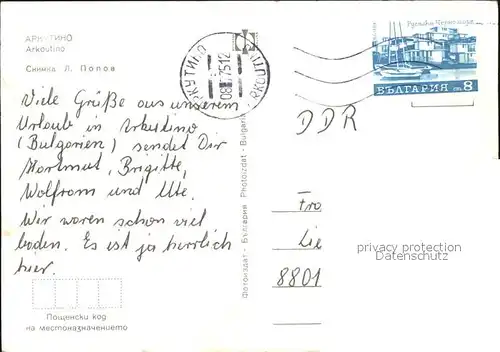 АРКУТИНО
Arkoutino
Снимка Л. Попов
АРКУТИНО
ARKOUTINO
Русалка Черно море
БЪЛГАРИЯ ст 8
Viele Grüße aus unserem
Urlaub in Arkutino
(Bulgarien) sendet Dir
Hartmut, Brigitte,
Wolfram und Ute.
Wir waren schon viel
baden. Es ist ja herrlich
hier.
DDR
Fro
Lie
8801
privacy protection
Datenschutz
Фотоиздат - България Photoizdat - Bulgaria
Пощенски код
на местоназначението